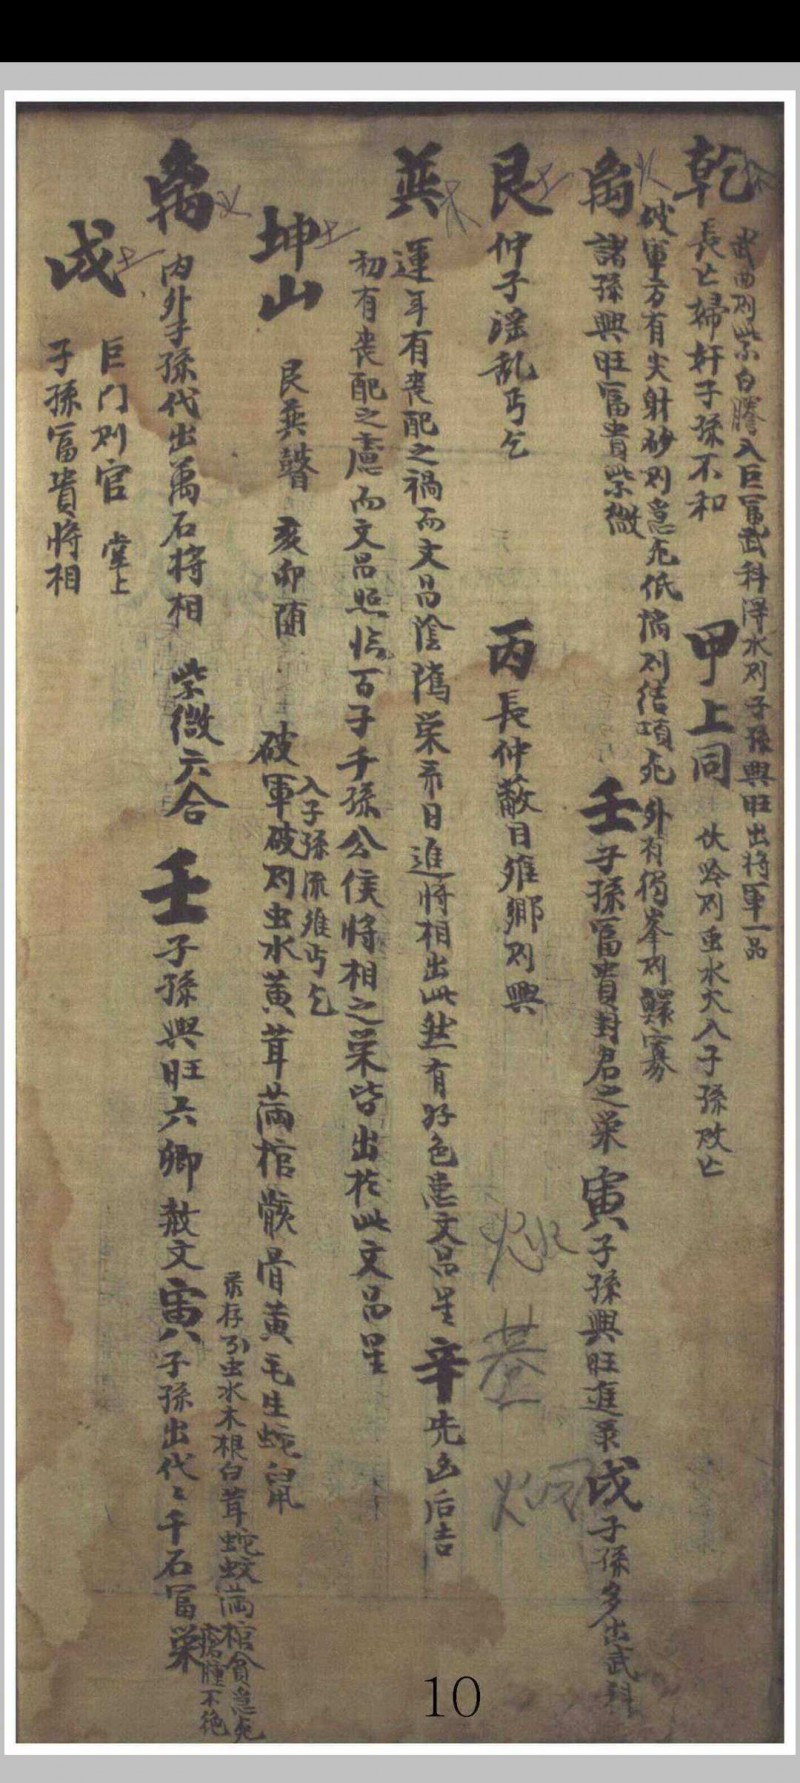 乾
武曲則紫白騰入巨富武科得水則子孫興旺出將軍一品
長亡婦奸子孫不和 甲上同 伏吟則虫水火入子孫敗亡
破軍方有尖射砂則急死低陷則結項死外有獨峯則鰥寡
离 諸孫興旺富貴紫微 壬子孫富貴封君之栄 寅子孫興旺進彔 戌子孫多出武科
艮 仲子淫乱丐乞 丙長仲蔽目離鄉則興
巽 運年有喪配之禍而文昌陰隲栄希日進將相出此然有好色患文昌星 辛先凶后吉
初有喪配之慮而文昌照临百子千孫公侯將相之栄皆出於此文昌星
坤山 艮巽聲 亥卯随 破軍破則虫水黃茸滿棺骸骨黃毛生蛇鼠
入子孫流離丐乞
彔存引虫水木根白茸蛇蚊滿棺貪急死
瘡腫不絶
离 內外子孫代出萬石將相 紫微六合 壬子孫興旺六卿敖文 寅子孫出代々千石冨栄
戌 巨门則官 掌上
子孫冨貴將相
10